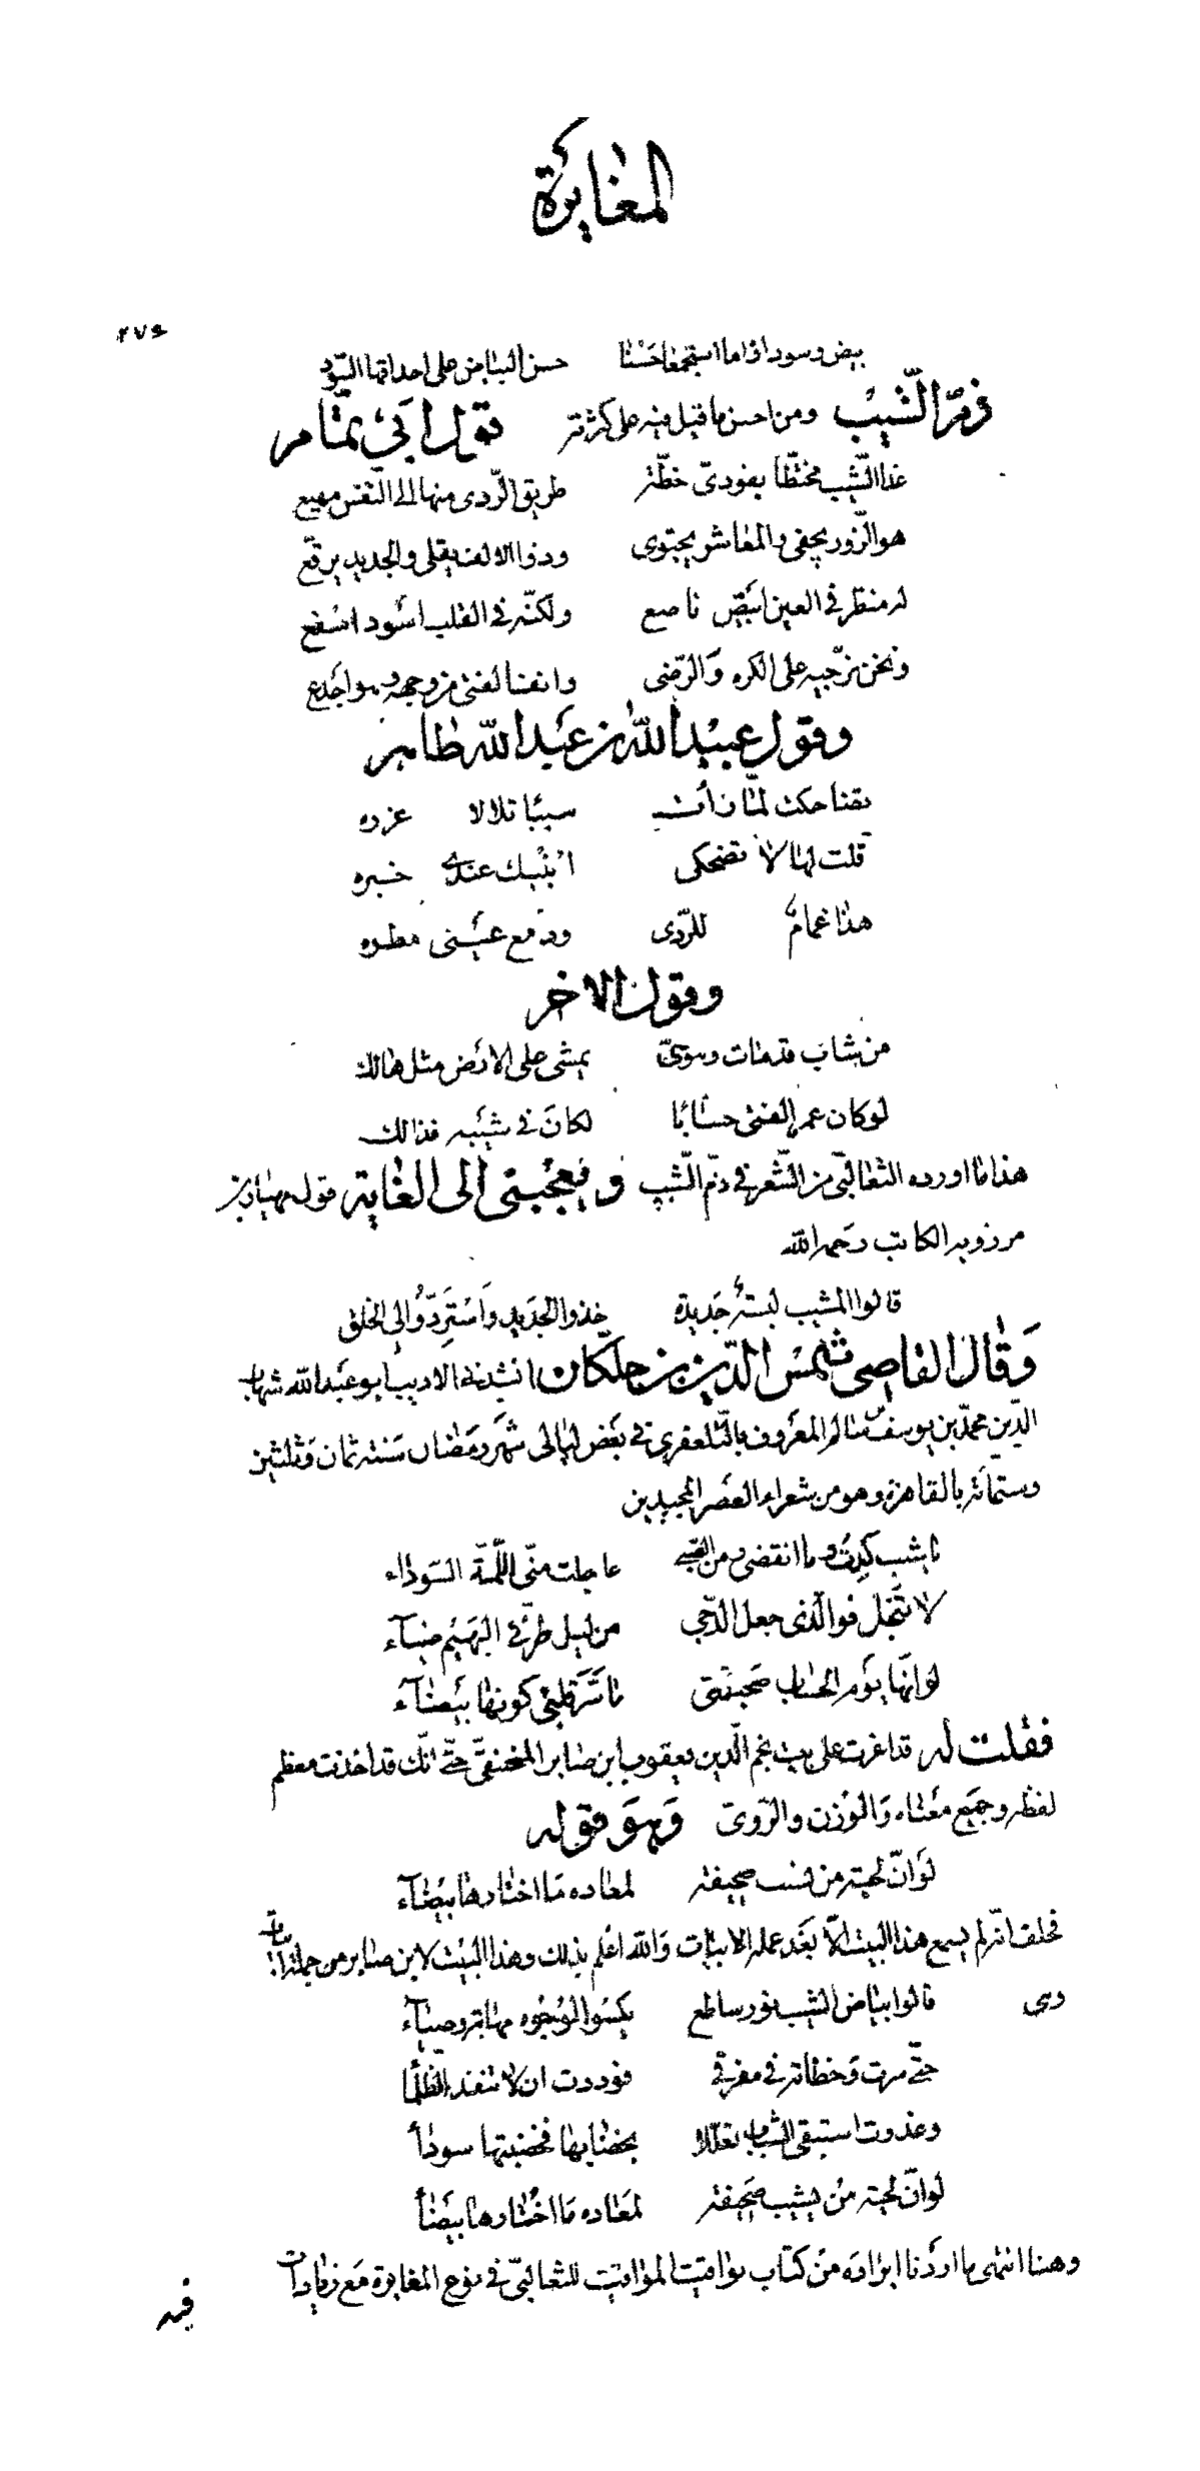 المغايرة
٢٧٤
بيض وسود اذا ما استجمعا حسنا حسن البياض على احداقها السود
ذمّ الشّيب ومن احسن ما قيل فيه على كثرته قول ابي تمّام
غدا الشّيب مختطّا بفوديّ خطّة طريق الرّدى منها الى النّفس مهيع
هو الزّور يجفى والمعاشر يجتوى وذو الالف يقلى والجديد يرقّع
له منظر في العين ابيض ناصع ولكنّه في القلب اسود اسفع
ونحن نزجّيه على الكره والرّضى وانف الفتى من وجهه وهو اجدع
وقول عبيد الله بن عبد الله طاهر
تضاحكت لمّا رأت شيبا تلالا غرره
قلت لها لا تضحكي انبئك عندي خبره
هذا غمامٌ للرّدى ودمع عيني مطره
وقول الاخر
من شاب قد مات وهو حيّ يمشي على الارض مثل هالك
لو كان عمر الفتى حسابا لكان في شيبه فذالك
هذا ما اورده الثعالبيّ من الشّعر في ذمّ الشّيب ويعجبني الى الغاية قول مهيار بن
مرزويه الكاتب رحمه الله
قالوا المشيب لبسةٌ جديدة خذوا الجديد واستردّوا لي الخلق
وقال القاضي شمس الدّين بن خلّكان انشدني الاديب ابو عبد الله شهاب
الدّين محمّد بن يوسف بن سالم المعروف بالتّلعفري في بعض ليالي شهر رمضان سنة ثمان وثلثين
وستّمائة بالقاهرة وهو من شعراء العصر المجيدين
يا شيب كيف وما انقضى زمن الصّبى عاجلت منّي اللّمّة السّوداء
لا تعجل فوالّذي جعل الدّجى من ليل طرّتي البهيم ضياء
لو انّها يوم الحساب صحيفتي ما سرّ قلبي كونها بيضاء
فقلت له قد اغرت على بيت نجم الدّين يعقوب ابن صابر المنجنيقيّ حتّى انّك قد اخذت معظم
لفظه وجميع معناه والوزن والرّويّ وهو قوله
لو انّ لحية من يشيب صحيفة لمعاده ما اختارها بيضاء
فحلف انّه لم يسمع هذا البيت الاّ بعد عمله الابيات والله اعلم بذلك وهذا البيت لابن صابر من جملة ابيات
وهي قالوا بياض الشيب نور ساطع يكسو الوجوه مهابة وضياء
حتّى سرت وخطاته في مفرقي فوددت ان لا تفقد الظّلما
وغدوت استبقي الشباب تعلّلا بخضابها فخضبتها سودأ
لو انّ لحية من يشيب صحيفة لمعاده ما اختارها بيضأ
وهنا انتهى ما اردنا ايراده من كتاب يواقيت المواقيت للثعالبيّ في نوع المغايرة مع زيادات
فيه